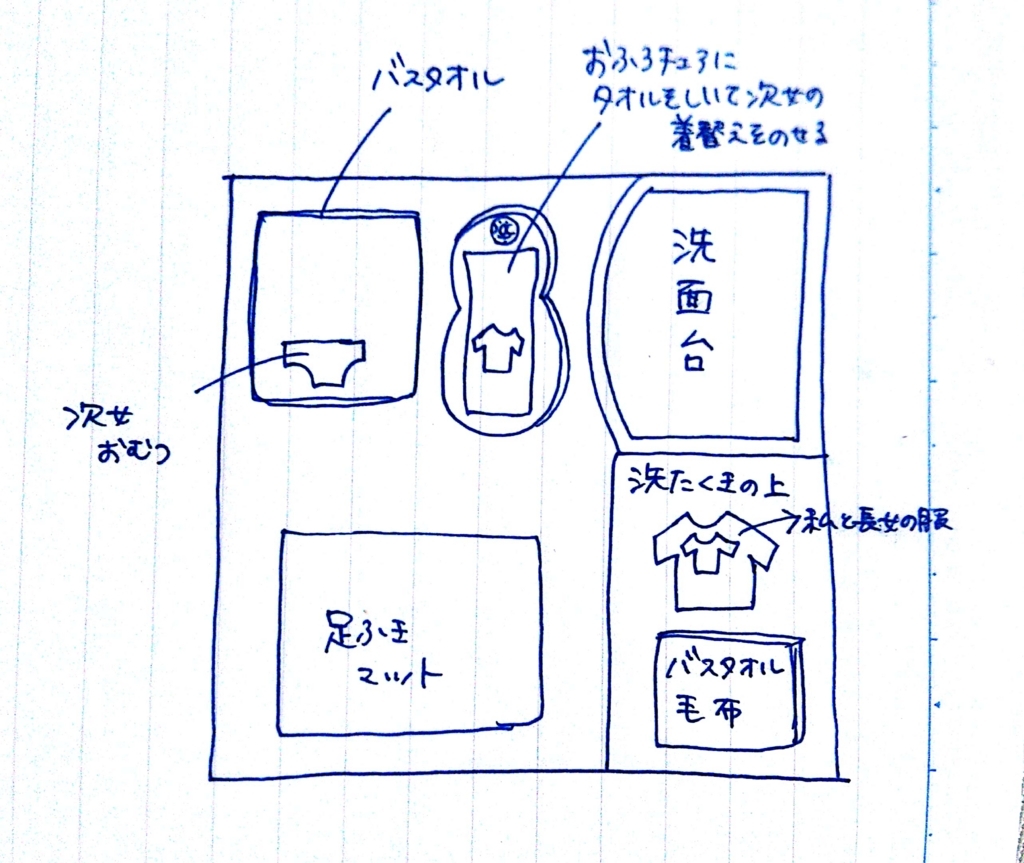 バスタオル
おふろチェアに
タオルをしいて次女の
着替えをのせる
洗
面
台
次女
おむつ
洗たくきの上
私と長女の服
足ふき
マット
バスタオル
毛布